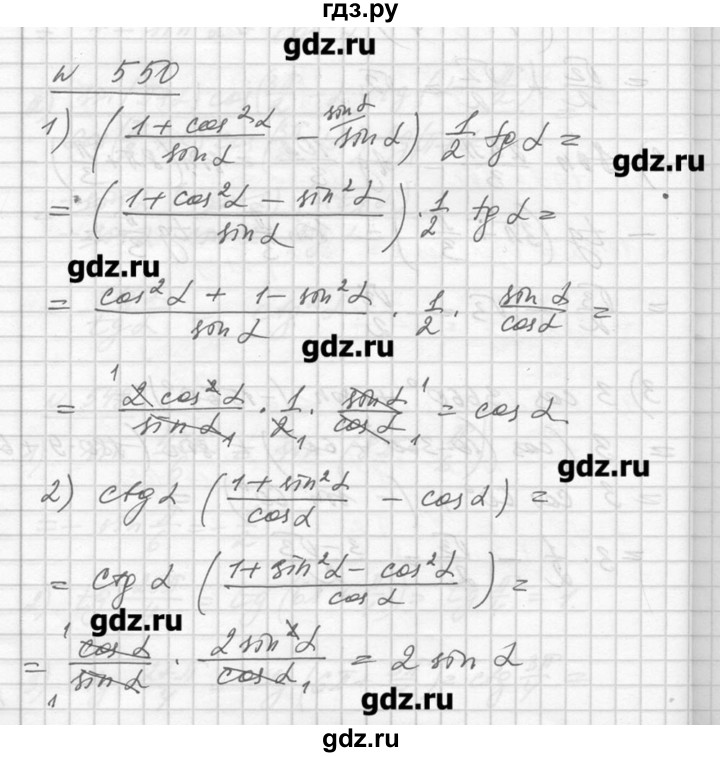 гдз.ру
gdz.ru
№ 550
1) ((1 + cos²α)/(sin α) − (sin α) sin α) 1/2 tg α =
gdz.ru
= ((1 + cos²α − sin²α)/(sin α)) · 1/2 tg α =
gdz.ru
= (cos²α + 1 − sin²α)/(sin α) · 1/2 · (sin α)/(cos α) =
gdz.ru
= (2 cos²α)/(sin α) · 1/2 · (sin α)/(cos α) = cos α
gdz.ru
2) ctg α ((1 + sin²α)/(cos α) − cos α) =
= ctg α ((1 + sin²α − cos²α)/(cos α)) =
gdz.ru
= (cos α)/(sin α) · (2 sin²α)/(cos α) = 2 sin α
gdz.ru
gdz.ru